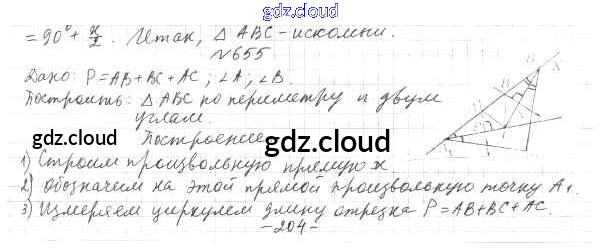 gdz.cloud
= 90° + x/2. Итак, △ABC - искомый.
№655
Дано: P = AB + BC + AC; ∠A; ∠B.
Построить: △ABC по периметру и двум
углам.
gdz.cloud
Построение
gdz.cloud
gdz.cloud
1) Строим произвольную прямую x
2) обозначим на этой прямой произвольную точку A₁.
3) Измеряем циркулем длину отрезка P = AB + BC + AC.
- 204 -
gdz.cloud